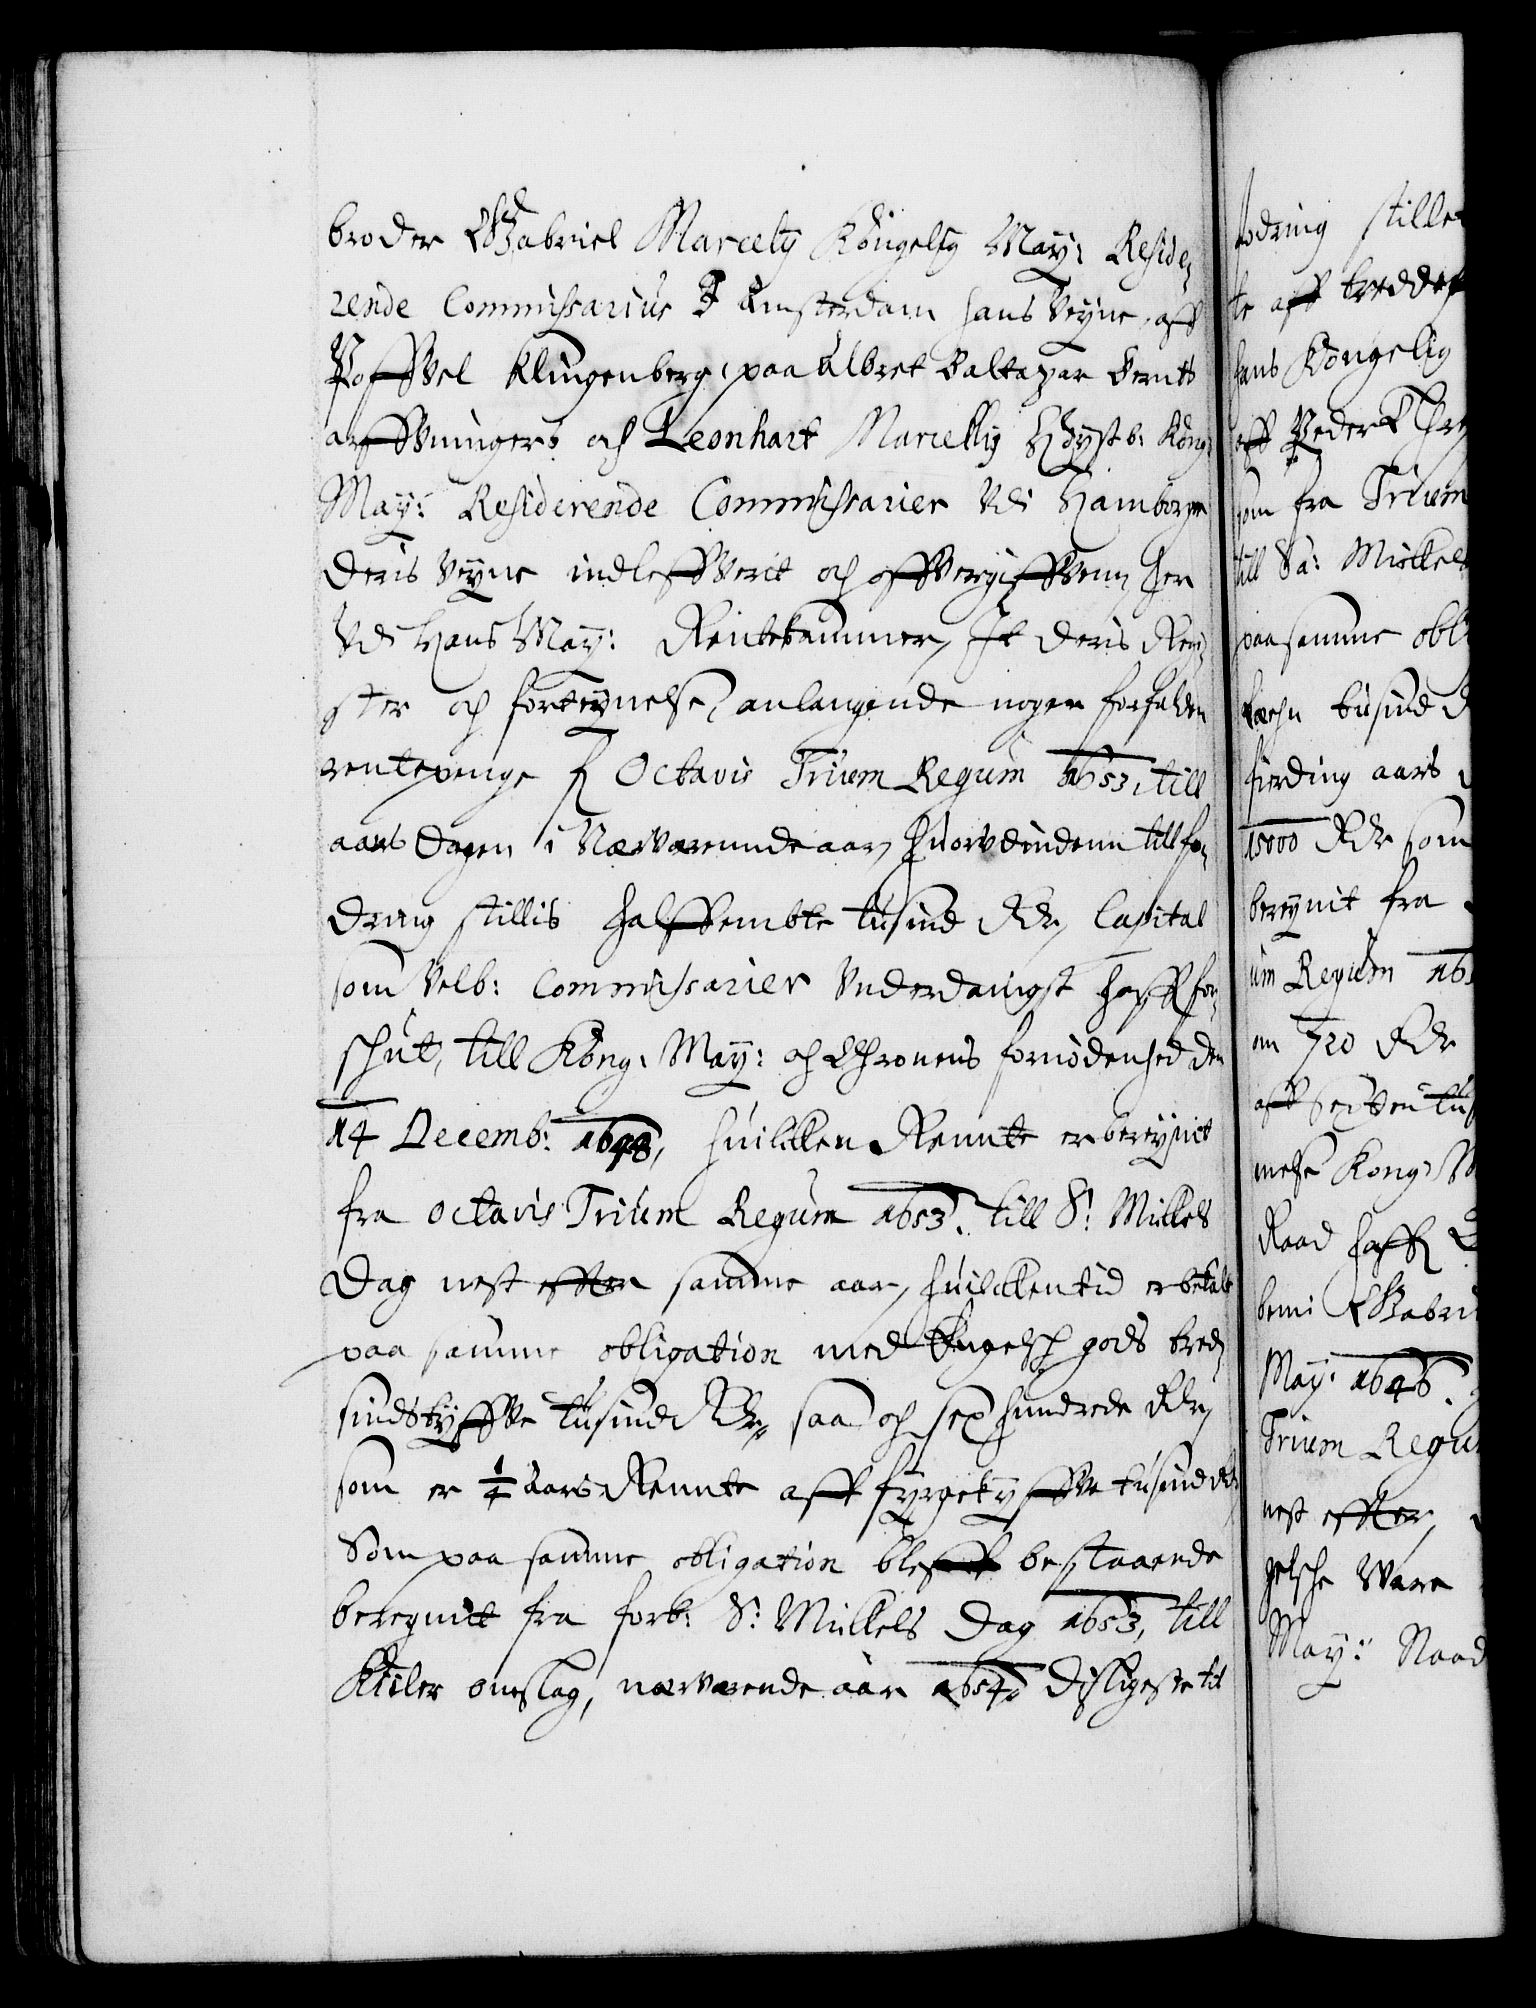 broder Gabriel Marcely Kongelig May: Reside,
rende Commissarius I Amsterdam hans Vegne, aff
Poffvel Klingenberg, paa Albret Baltazar Bernts
arffvingers och Leonhart Marcellij Höystb: Kong:
May: Residerende Commissarier Vdi Hamborger
deris Vegne indleffverit och offvergiffven her
Vdi Hans May: Rentekammer, It deris Regi,
ster och forteignelse, anlangende nogen forfalden
rentepenge fra Octavis Trium Regum 1653, till
aars dagen i Nærværennde aar, huorvdindenn till for,
dring stillis halffembte tusind Rdr, Capital
som Velb: Commissarier Underdanigst haffr for,
schut, till Kong: May: och Chronens fornödenhed den
14 Decemb: 1648, huilcken Rennte er beregnit
fra octavis Trium Regum 1653. till S: Mickels
Dag nest effter samme aar, huilcken tid er betalt
paa samme obligation med Engelsch gods tred,
sindstyffve tusind Rdr, saa och sex hundrede Rdr,
som er 1/4 Aars Rennte aff fyrgetyffve tusind Rdr
Som paa samme obligation bleff bestaaende
beregnitt fra forb: S: Mickels Dag 1653, till
Kiiler omslag, nærværende aar 1654. Disligeste til
fodring stille
te aff tredde
hans Kongelig
aff Peder
som fra Trium
till Sa: Mickels
paa samme obl
tusind
fierding aars
15000 Rdr som
beregnit fra
um Regum 165
720 Rdr
aff
Kong: M
Raad haffr
Gabri
May: 1646.
Trium Regu
nest effter,
gelsche Vare
May: Raad